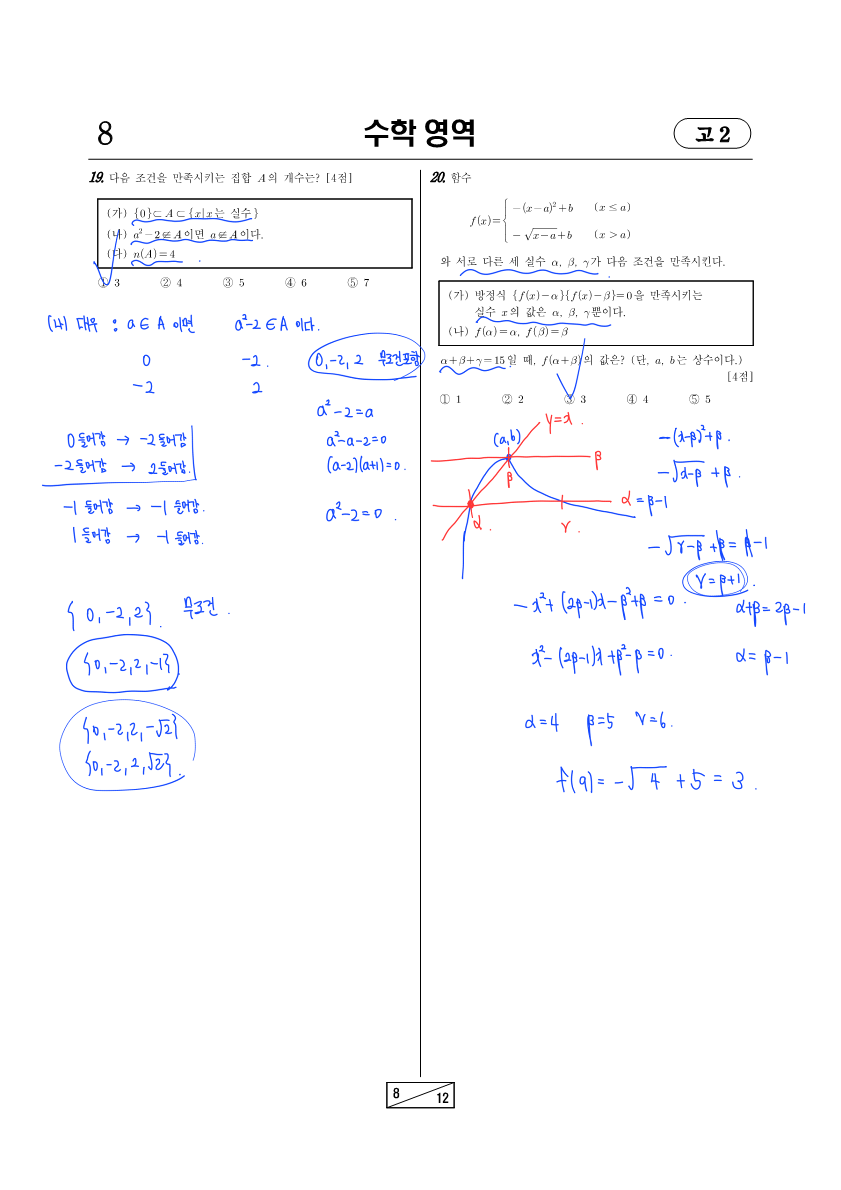 8
수학 영역
고 2
19. 다음 조건을 만족시키는 집합 A의 개수는? [4점]
(가) {0}⊂A⊂{x|x는 실수}
(나) a²-2∉A이면 a∉A이다.
(다) n(A)=4
① 3 ② 4 ③ 5 ④ 6 ⑤ 7
(나) 대우 : a∈A 이면 a²-2∈A 이다.
0 -2. 0,-2,2 무조건포함
-2 2
a²-2=a
0들어감 → -2들어감 a²-a-2=0
-2들어감 → 2들어감. (a-2)(a+1)=0.
-1 들어감 → -1 들어감. a²-2=0.
1들어감 → -1 들어감.
{0,-2,2}. 무조건.
{0,-2,2,-1}
{0,-2,2,-√2}
{0,-2,2,√2}.
20. 함수
f(x)={ -(x-a)²+b (x≤a)
-√x-a+b (x>a)
와 서로 다른 세 실수 α, β, γ가 다음 조건을 만족시킨다.
(가) 방정식 {f(x)-α}{f(x)-β}=0을 만족시키는
실수 x의 값은 α, β, γ뿐이다.
(나) f(α)=α, f(β)=β
α+β+γ=15일 때, f(α+β)의 값은? (단, a, b는 상수이다.)
[4점]
① 1 ② 2 ③ 3 ④ 4 ⑤ 5
y=x.
(a,b) -(x-β)²+β.
β
β -√x-β +β.
α=β-1
α. γ.
-√γ-β +β=β-1
γ=β+1.
-x²+(2β-1)x-β²+β=0. α+β=2β-1
x²-(2β-1)x+β²-β=0. α=β-1
α=4 β=5 γ=6.
f(9)=-√4 +5=3.
8
12